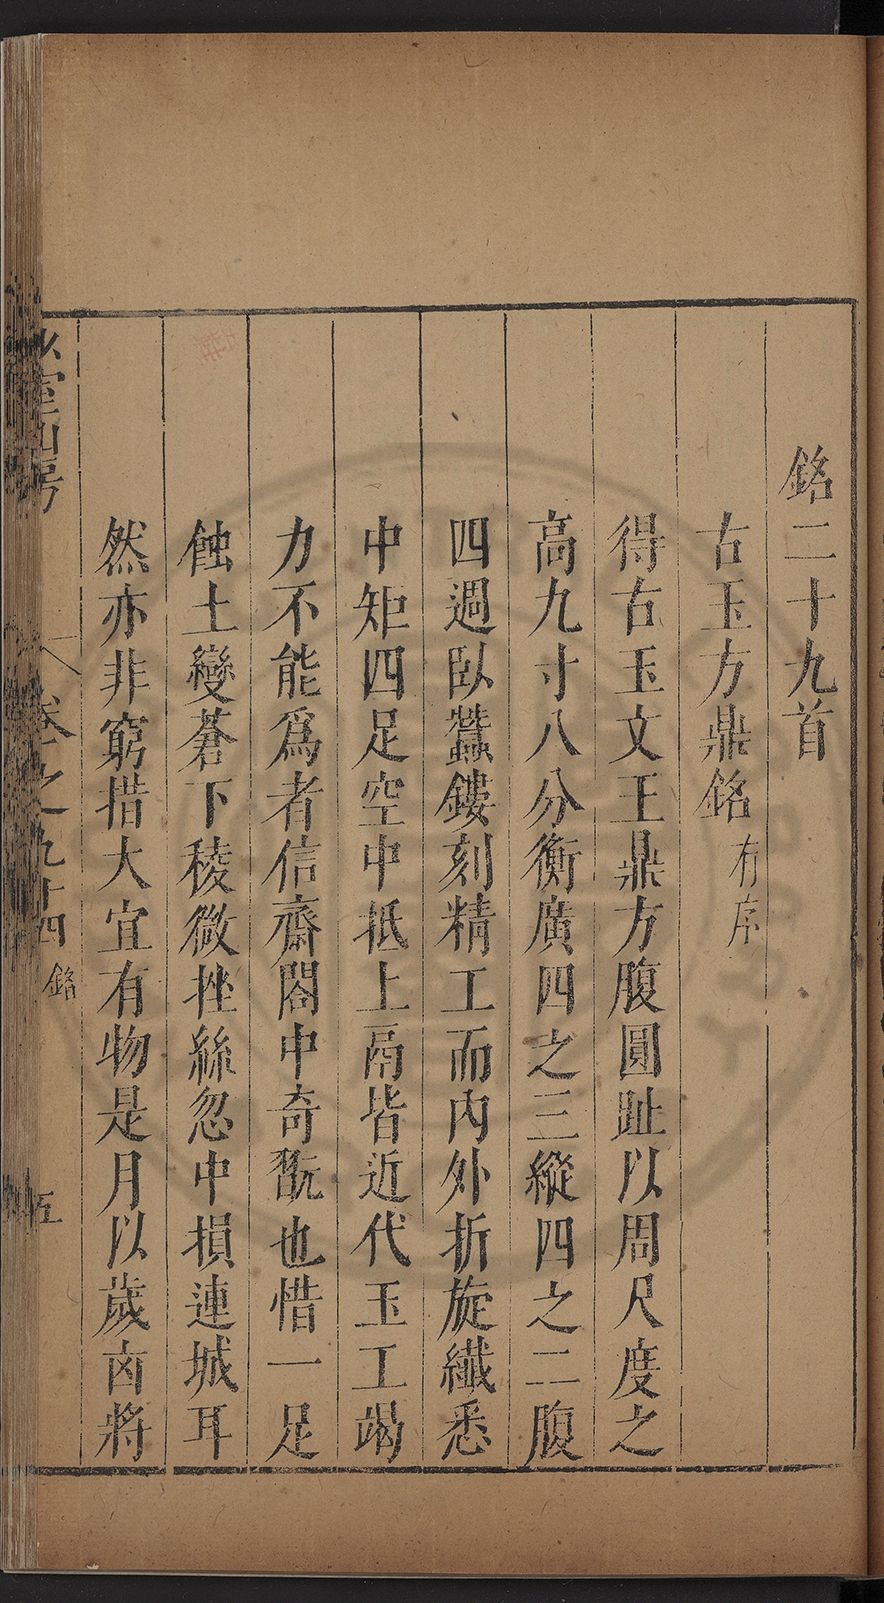 銘二十九首
古玉方鼎銘有序
得古玉文王鼎方腹圓趾以周尺度之
高九寸八分衡廣四之三縱四之二腹
四週臥蠶鏤刻精工而內外折旋纖悉
中矩四足空中抵上鬲皆近代玉工竭
力不能爲者信齋閣中奇翫也惜一足
蝕土變蒼下稜微挫絲忽中損連城耳
然亦非窮措大宜有物是月以歲㐫將
室山房
卷之九十四 銘
五